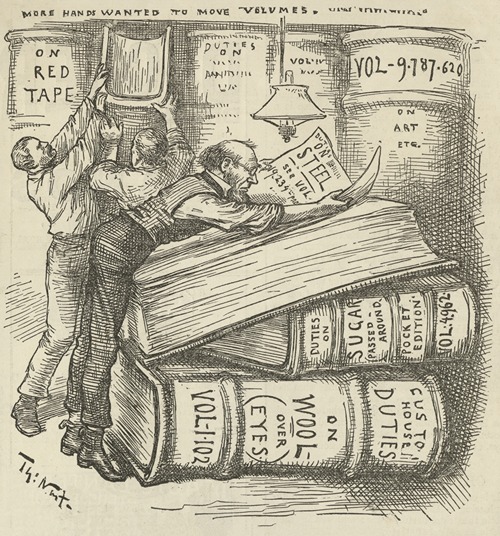 MORE HANDS WANTED TO MOVE VOLUMES.
ON
RED
TAPE
DUTIES
ON
VOL-9.787.620
ON
ART
ETC.
ON
STEEL
SEE VOL.
DUTIES
ON
SUGAR
(PASSED
AROUND.
POCKET
EDITION.
VOL:4962
CUSTO
HOUSE
DUTIES
ON
WOOL-
(OVER
EYES)
VOL-1.102
Th: Nast.